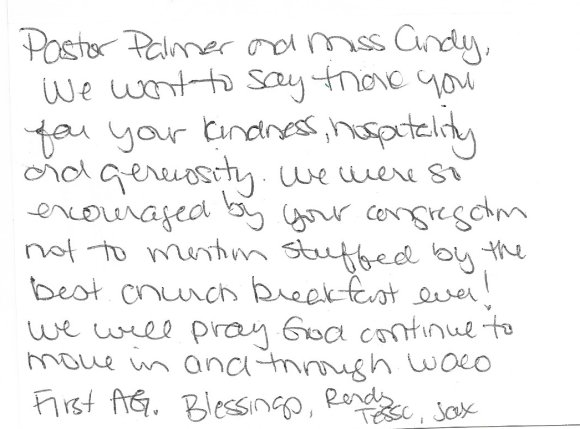 Pastor Palmer and Miss Cindy,
We want to say thank you
for your kindness, hospitality
and generosity. We were so
encouraged by your congregation
not to mention stuffed by the
best church breakfast ever!
We will pray God continue to
move in and through Waco
First AG. Blessings, Randy
Tessc, Jax